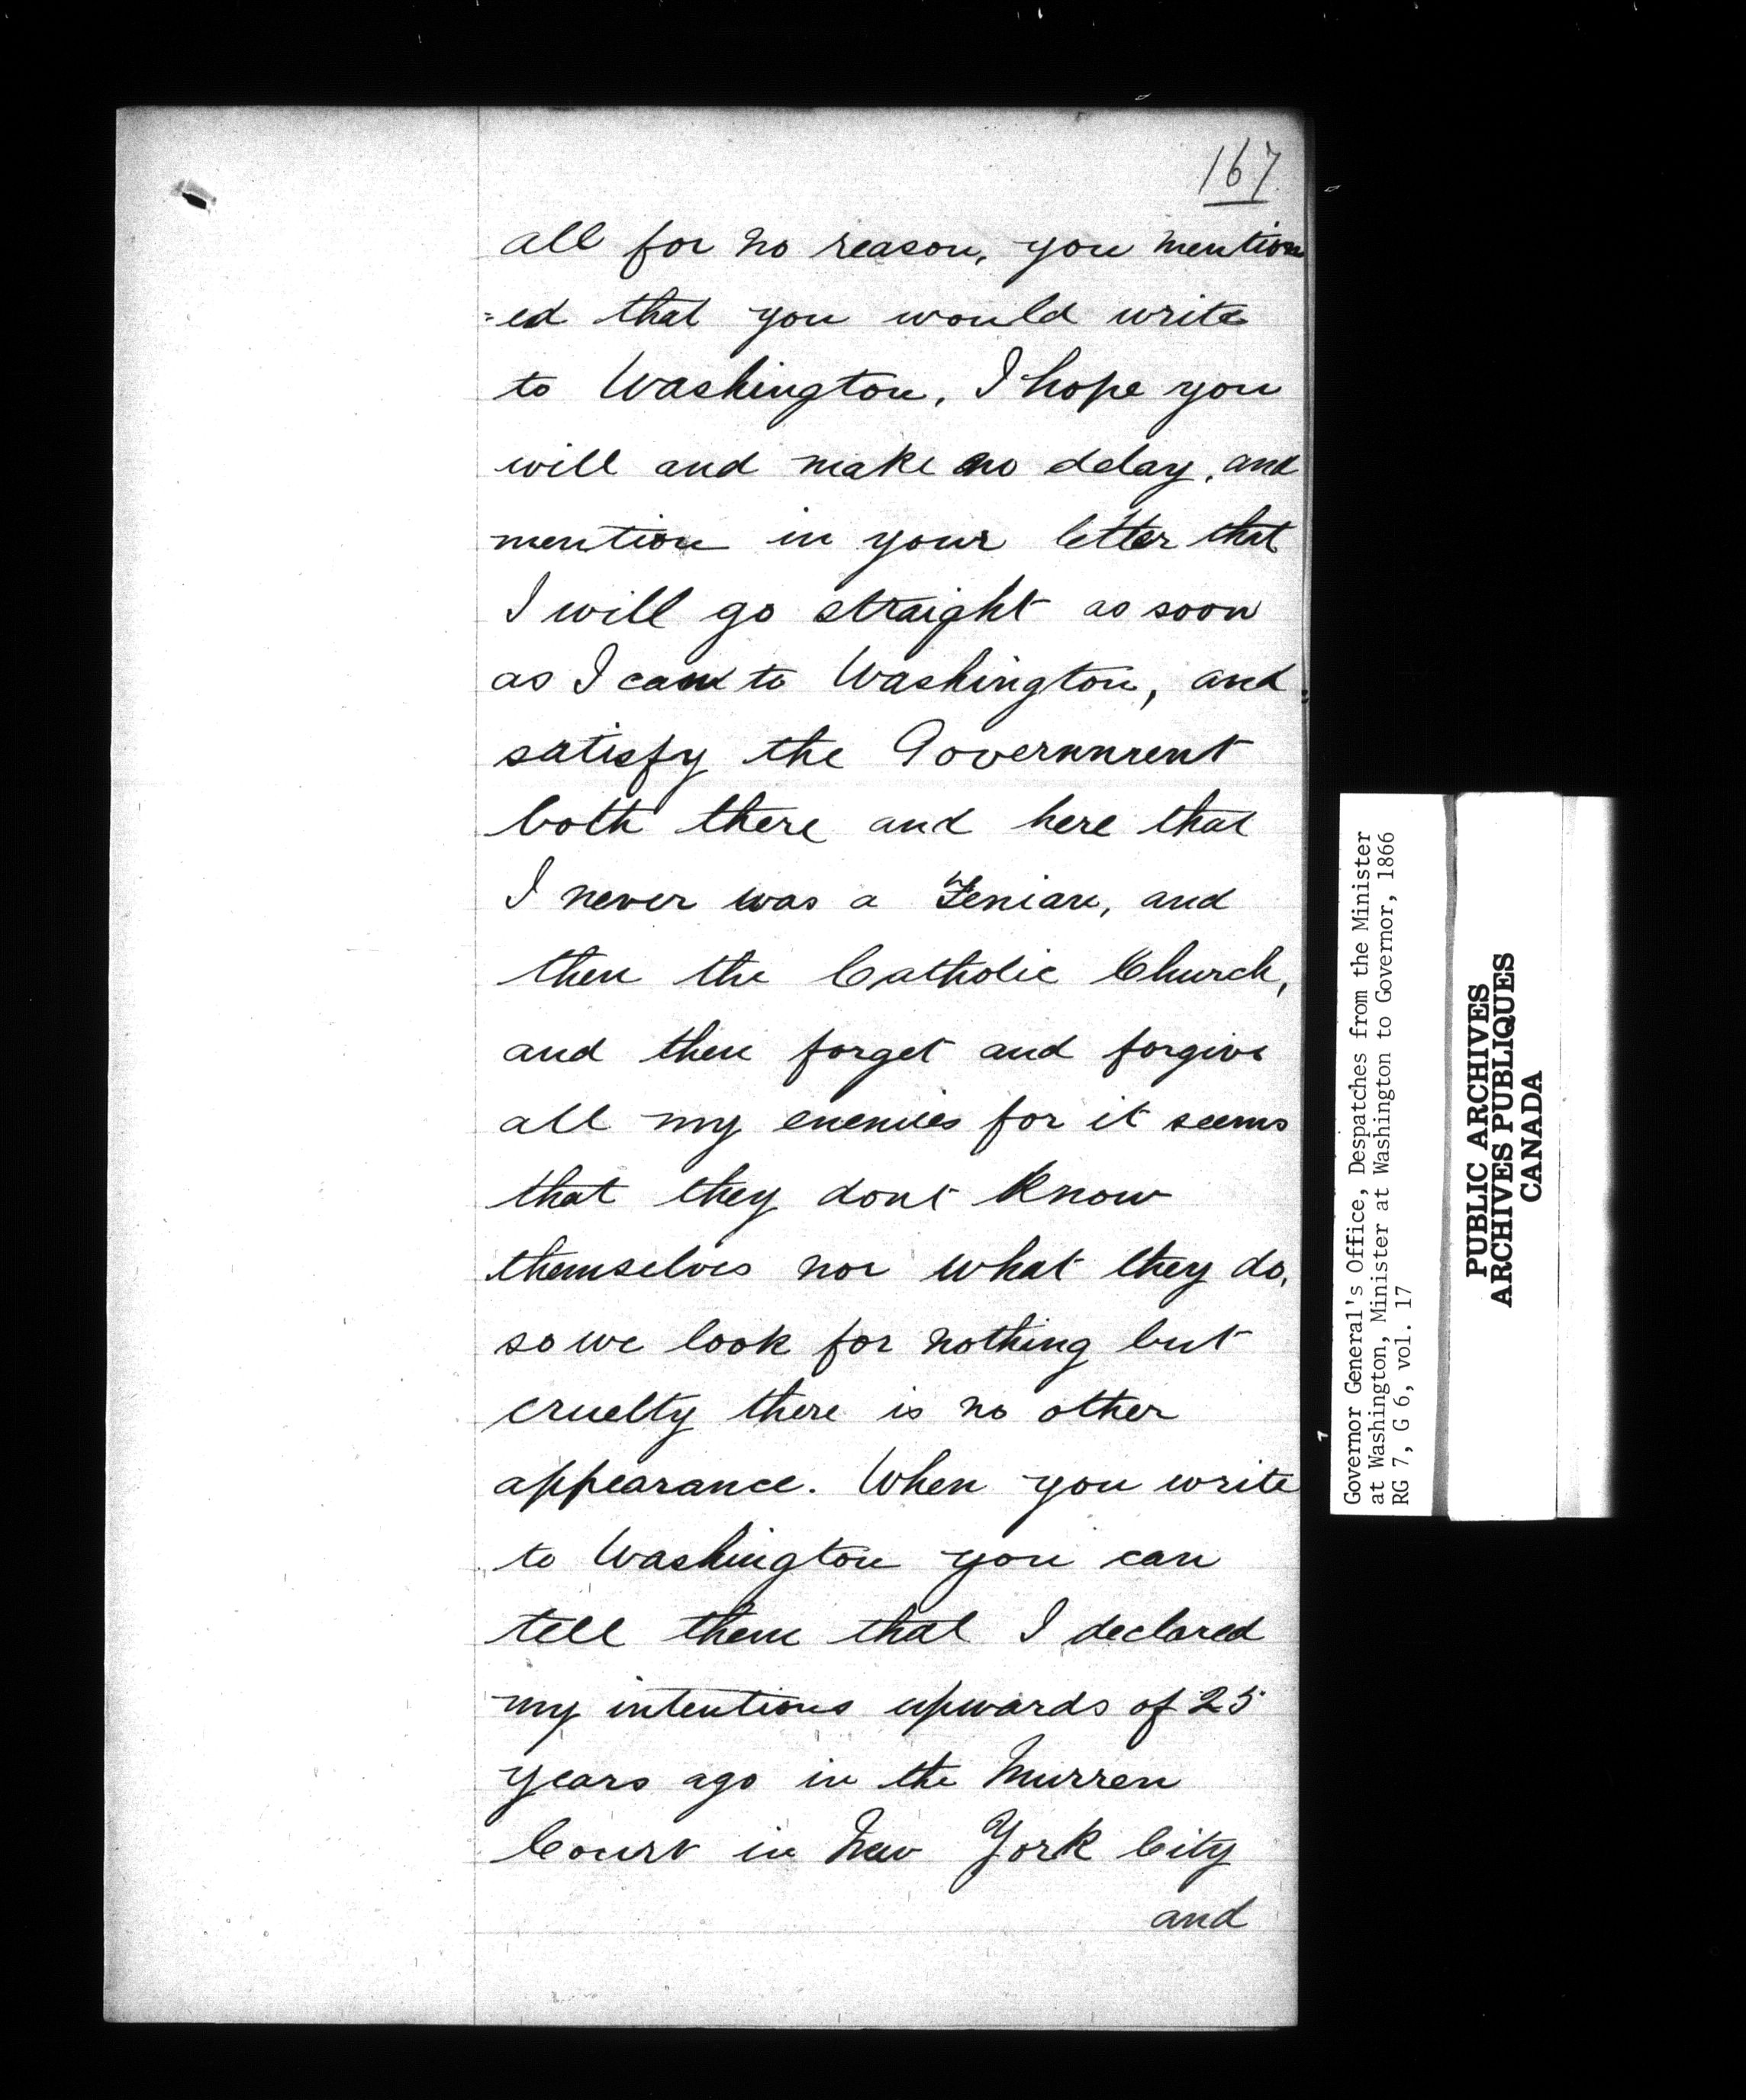 167
all for no reason, you mention
=ed that you would write
to Washington, I hope you
will and make no delay, and
mention in your letter that
I will go straight as soon
as I can to Washington, and
satisfy the Government
both there and here that
I never was a Fenian, and
then the Catholic Church,
and then forget and forgive
all my enemies for it seems
that they dont know
themselves nor what they do,
so we look for nothing but
cruelty there is no other
appearance. When you write
to Washington you can
tell them that I declared
my intentions upwards of 25
years ago in the Murren
Court in New York City
and
Governor General's Office, Despatches from the Minister
at Washington, Minister at Washington to Governor, 1866
RG 7, G 6, vol. 17
PUBLIC ARCHIVES
ARCHIVES PUBLIQUES
CANADA